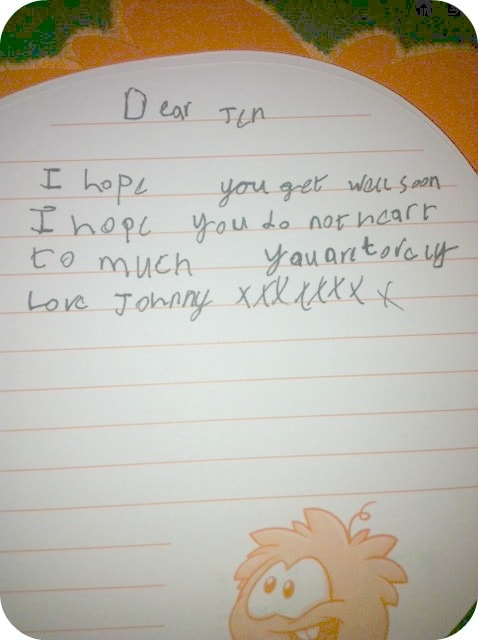 Dear Jen
I hope you get well soon
I hope you do not heart
to much you are to
Love Johnny xxxxxxx x